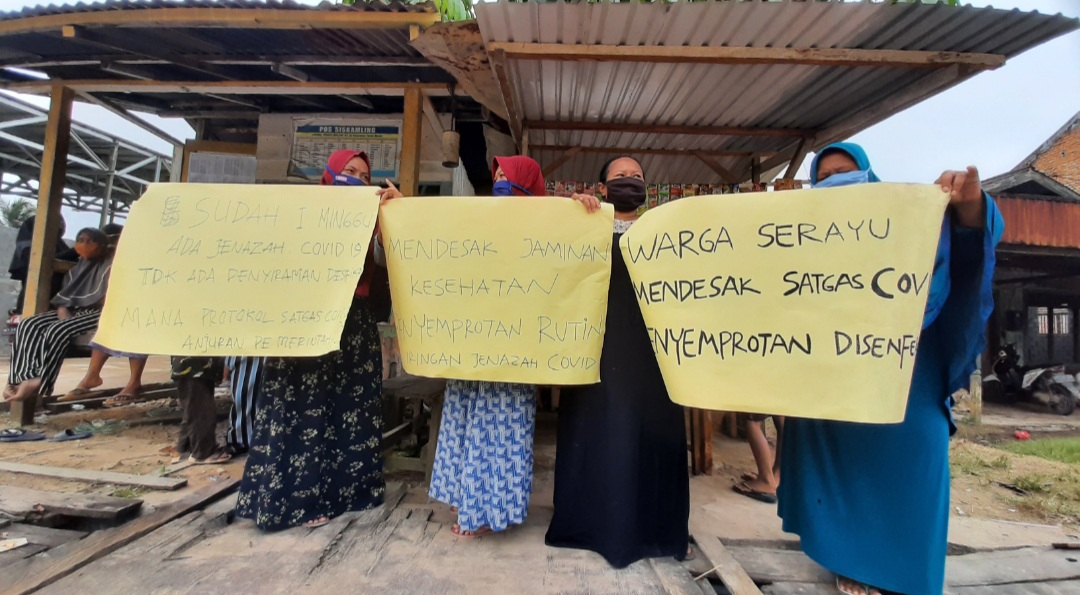 POS SISKAMLING
SUDAH 1 MINGGU
ADA JENAZAH COVID 19
TDK ADA PENYRAMAN
MANA PROTOKOL SATGAS
ANJURAN PE MERINTA
MENDESAK JAMINAN
KESEHATAN
NYEMPROTAN RUTIN
IRINGAN JENAZAH COVID
WARGA SERAYU
MENDESAK SATGAS COV
ENYEMPROTAN DISENFE